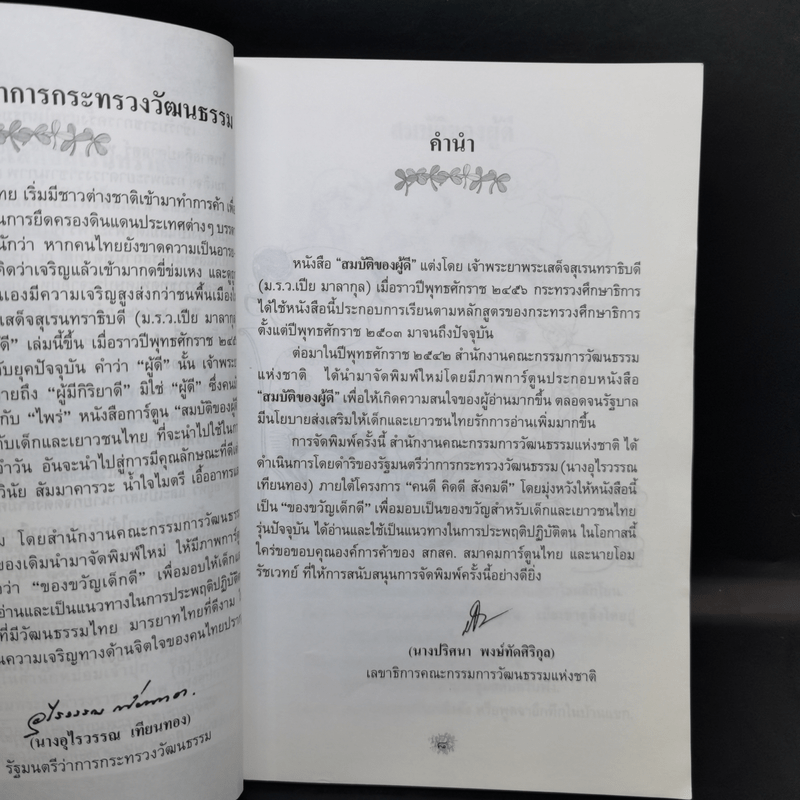 าการกระทรวงวัฒนธรรม
ทย เริ่มมีชาวต่างชาติเข้ามาทำการค้า เพื่
นการยึดครองดินแดนประเทศต่างๆ บรรด
นักว่า หากคนไทยยังขาดความเป็นอารย
คิดว่าเจริญแล้วเข้ามากดขี่ข่มเหง และดูถู
นเองมีความเจริญสูงส่งกว่าชนพื้นเมืองใ
เสด็จสุเรนทราธิบดี (ม.ร.ว.เปีย มาลากุล)
ดี” เล่มนี้ขึ้น เมื่อราวปีพุทธศักราช ๒๔๕
กับยุคปัจจุบัน คำว่า “ผู้ดี” นั้น เจ้าพระย
ายถึง “ผู้มีกิริยาดี” มิใช่ “ผู้ดี” ซึ่งคน
กับ “ไพร่” หนังสือการ์ตูน “สมบัติของผู้ดี
กับเด็กและเยาวชนไทย ที่จะนำไปใช้ในก
จำวัน อันจะนำไปสู่การมีคุณลักษณะที่ดีเ
วินัย สัมมาคารวะ น้ำใจไมตรี เอื้ออาทรแ
ม โดยสำนักงานคณะกรรมการวัฒนธร
ของเดิมนำมาจัดพิมพ์ใหม่ ให้มีภาพการ์ตู
ว่า “ของขวัญเด็กดี” เพื่อมอบให้เด็กแ
อ่านและเป็นแนวทางในการประพฤติปฏิบัติ
ที่มีวัฒนธรรมไทย มารยาทไทยที่ดีงาม
นความเจริญทางด้านจิตใจของคนไทยปราก
อุไรวรรณ เทียนทอง
(นางอุไรวรรณ เทียนทอง)
รัฐมนตรีว่าการกระทรวงวัฒนธรรม
คำนำ
หนังสือ “สมบัติของผู้ดี” แต่งโดย เจ้าพระยาพระเสด็จสุเรนทราธิบดี
(ม.ร.ว.เปีย มาลากุล) เมื่อราวปีพุทธศักราช ๒๔๕๖ กระทรวงศึกษาธิการ
ได้ใช้หนังสือนี้ประกอบการเรียนตามหลักสูตรของกระทรวงศึกษาธิการ
ตั้งแต่ปีพุทธศักราช ๒๕๐๓ มาจนถึงปัจจุบัน
ต่อมาในปีพุทธศักราช ๒๕๔๒ สำนักงานคณะกรรมการวัฒนธรรม
แห่งชาติ ได้นำมาจัดพิมพ์ใหม่โดยมีภาพการ์ตูนประกอบหนังสือ
“สมบัติของผู้ดี” เพื่อให้เกิดความสนใจของผู้อ่านมากขึ้น ตลอดจนรัฐบาล
มีนโยบายส่งเสริมให้เด็กและเยาวชนไทยรักการอ่านเพิ่มมากขึ้น
การจัดพิมพ์ครั้งนี้ สำนักงานคณะกรรมการวัฒนธรรมแห่งชาติ ได้
ดำเนินการโดยดำริของรัฐมนตรีว่าการกระทรวงวัฒนธรรม (นางอุไรวรรณ
เทียนทอง) ภายใต้โครงการ “คนดี คิดดี สังคมดี” โดยมุ่งหวังให้หนังสือนี้
เป็น “ของขวัญเด็กดี” เพื่อมอบเป็นของขวัญสำหรับเด็กและเยาวชนไทย
รุ่นปัจจุบัน ได้อ่านและใช้เป็นแนวทางในการประพฤติปฏิบัติตน ในโอกาสนี้
ใคร่ขอขอบคุณองค์การค้าของ สกสค. สมาคมการ์ตูนไทย และนายโอม
รัชเวทย์ ที่ให้การสนับสนุนการจัดพิมพ์ครั้งนี้อย่างดียิ่ง
(นางปริศนา พงษ์ทัดศิริกุล)
เลขาธิการคณะกรรมการวัฒนธรรมแห่งชาติ